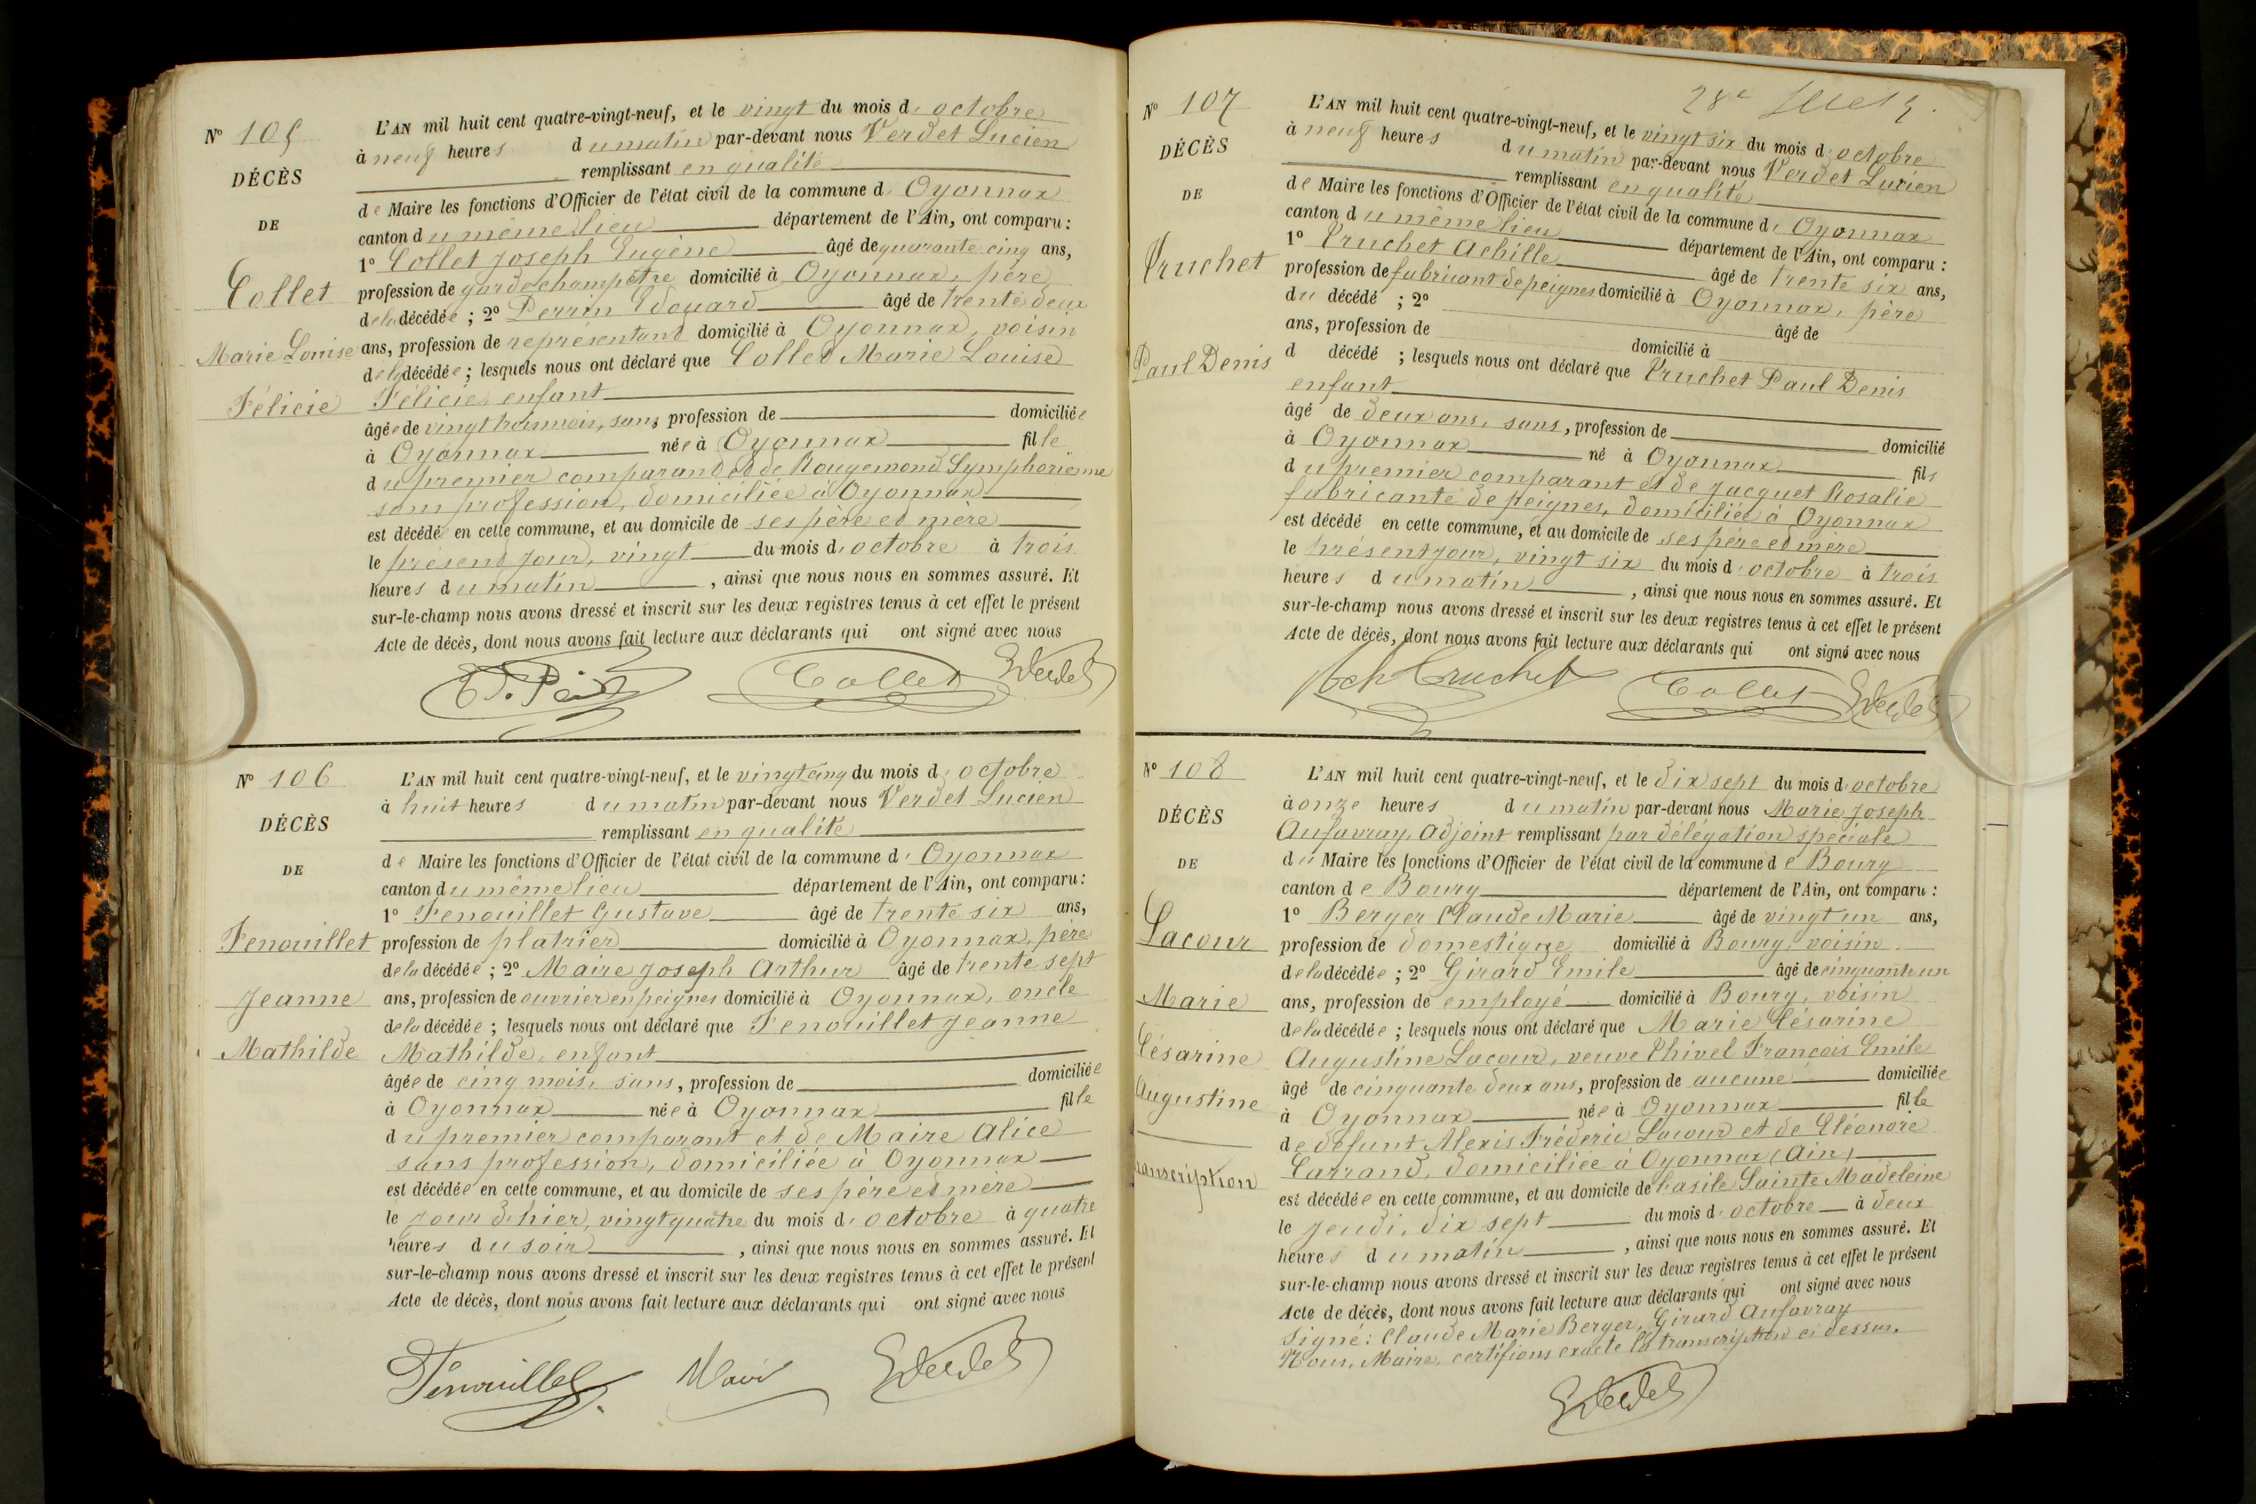 N° 105
DÉCÈS
DE
Collet
Marie Louise
Félicie
L'AN mil huit cent quatre-vingt-neuf, et le vingt du mois d'octobre
à neuf heures du matin par-devant nous Verdet Lucien
remplissant en qualité
de Maire les fonctions d'Officier de l'état civil de la commune d'Oyonnax
canton du même lieu département de l'Ain, ont comparu :
1° Collet Joseph Eugène âgé de quarante cinq ans,
profession de garde champêtre domicilié à Oyonnax, père
de la décédée ; 2° Perrin Edouard âgé de trente deux
ans, profession de représentant domicilié à Oyonnax, voisin
de la décédée ; lesquels nous ont déclaré que Collet Marie Louise
Félicie, enfant
âgée de vingt trois mois, sans profession de domiciliée
à Oyonnax née à Oyonnax fille
du premier comparant et de Rougemond Symphorienne
sans profession, domiciliée à Oyonnax
est décédé en cette commune, et au domicile de ses père et mère
le présent jour, vingt du mois d'octobre à trois
heures du matin, ainsi que nous nous en sommes assuré. Et
sur-le-champ nous avons dressé et inscrit sur les deux registres tenus à cet effet le présent
Acte de décès, dont nous avons fait lecture aux déclarants qui ont signé avec nous
Collet Verdet
N° 106
DÉCÈS
DE
Fenouillet
Jeanne
Mathilde
L'AN mil huit cent quatre-vingt-neuf, et le vingt cinq du mois d'octobre
à huit heures du matin par-devant nous Verdet Lucien
remplissant en qualité
de Maire les fonctions d'Officier de l'état civil de la commune d'Oyonnax
canton du même lieu département de l'Ain, ont comparu :
1° Fenouillet Gustave âgé de trente six ans,
profession de platrier domicilié à Oyonnax, père
de la décédée ; 2° Maire Joseph Arthur âgé de trente sept
ans, profession de ouvrier en peignes domicilié à Oyonnax, oncle
de la décédée ; lesquels nous ont déclaré que Fenouillet Jeanne
Mathilde, enfant
âgée de cinq mois, sans, profession de domiciliée
à Oyonnax née à Oyonnax fille
du premier comparant et de Maire Alice
sans profession, domiciliée à Oyonnax
est décédée en cette commune, et au domicile de ses père et mère
le jour d'hier, vingt quatre du mois d'octobre à quatre
heures du soir, ainsi que nous nous en sommes assuré. Et
sur-le-champ nous avons dressé et inscrit sur les deux registres tenus à cet effet le présent
Acte de décès, dont nous avons fait lecture aux déclarants qui ont signé avec nous
Fenouillet Maire Verdet
28e
N° 107
DÉCÈS
DE
Cruchet
Paul Denis
L'AN mil huit cent quatre-vingt-neuf, et le vingt six du mois d'octobre
à neuf heures du matin par-devant nous Verdet Lucien
remplissant en qualité
de Maire les fonctions d'Officier de l'état civil de la commune d'Oyonnax
canton du même lieu département de l'Ain, ont comparu :
1° Cruchet Achille âgé de trente six ans,
profession de fabricant de peignes domicilié à Oyonnax, père
du décédé ; 2° âgé de
ans, profession de domicilié à
d décédé ; lesquels nous ont déclaré que Cruchet Paul Denis
enfant
âgé de deux ans, sans, profession de domicilié
à Oyonnax né à Oyonnax fils
du premier comparant et de Jacquet Rosalie
fabricante de peignes, domiciliée à Oyonnax
est décédé en cette commune, et au domicile de ses père et mère
le présent jour, vingt six du mois d'octobre à trois
heures du matin, ainsi que nous nous en sommes assuré. Et
sur-le-champ nous avons dressé et inscrit sur les deux registres tenus à cet effet le présent
Acte de décès, dont nous avons fait lecture aux déclarants qui ont signé avec nous
Ach Cruchet Collet Verdet
N° 108
DÉCÈS
DE
Lacour
Marie
Césarine
Augustine
transcription
L'AN mil huit cent quatre-vingt-neuf, et le dix sept du mois d'octobre
à onze heures du matin par-devant nous Marie Joseph
Aufavray, Adjoint remplissant par délégation spéciale
du Maire les fonctions d'Officier de l'état civil de la commune de Bourg
canton de Bourg département de l'Ain, ont comparu :
1° Berger Claude Marie âgé de vingt un ans,
profession de domestique domicilié à Bourg, voisin
de la décédée ; 2° Girard Emile âgé de cinquante un
ans, profession de employé domicilié à Bourg, voisin
de la décédée ; lesquels nous ont déclaré que Marie Césarine
Augustine Lacour, veuve Thivel François Emile
âgé de cinquante deux ans, profession de aucune domiciliée
à Oyonnax née à Oyonnax fille
de défunt Alexis Fréderic Lacour et de Eléonore
Carrand, domiciliée à Oyonnax (Ain)
est décédée en cette commune, et au domicile de l'asile Sainte Madeleine
le jeudi, dix sept du mois d'octobre à deux
heures du matin, ainsi que nous nous en sommes assuré. Et
sur-le-champ nous avons dressé et inscrit sur les deux registres tenus à cet effet le présent
Acte de décès, dont nous avons fait lecture aux déclarants qui ont signé avec nous
Signé : Claude Marie Berger, Girard Aufavray
Nous, Maire, certifions exacte la transcription ci dessus.
Verdet